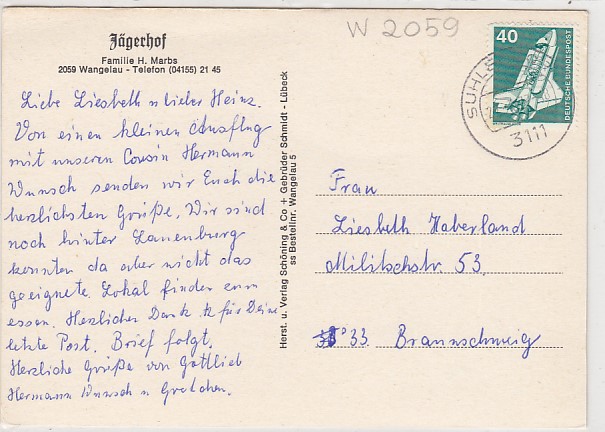 Jägerhof
Familie H. Marbs
2059 Wangelau - Telefon (04155) 21 45
W 2059
40
DEUTSCHE BUNDESPOST
SUHLE
3111
Liebe Liesbeth u lieber Heinz.
Von einen kleinen Ausflug
mit unseren Cousin Hermann
Wunsch senden wir Euch die
herzlichsten Grüße. Wir sind
noch hinter Lauenburg
konnten da aber nicht das
geeignete Lokal finden zum
essen. Herzlichen Dank für Deine
letzte Post. Brief folgt.
Herzliche Grüße von Gottlieb
Hermann Wunsch u Gretchen.
Herst. u. Verlag Schöning & Co + Gebrüder Schmidt - Lübeck
ss Bestellnr. Wangelau 5
Frau
Liesbeth Haberland
Militschstr. 53.
33 Braunschweig